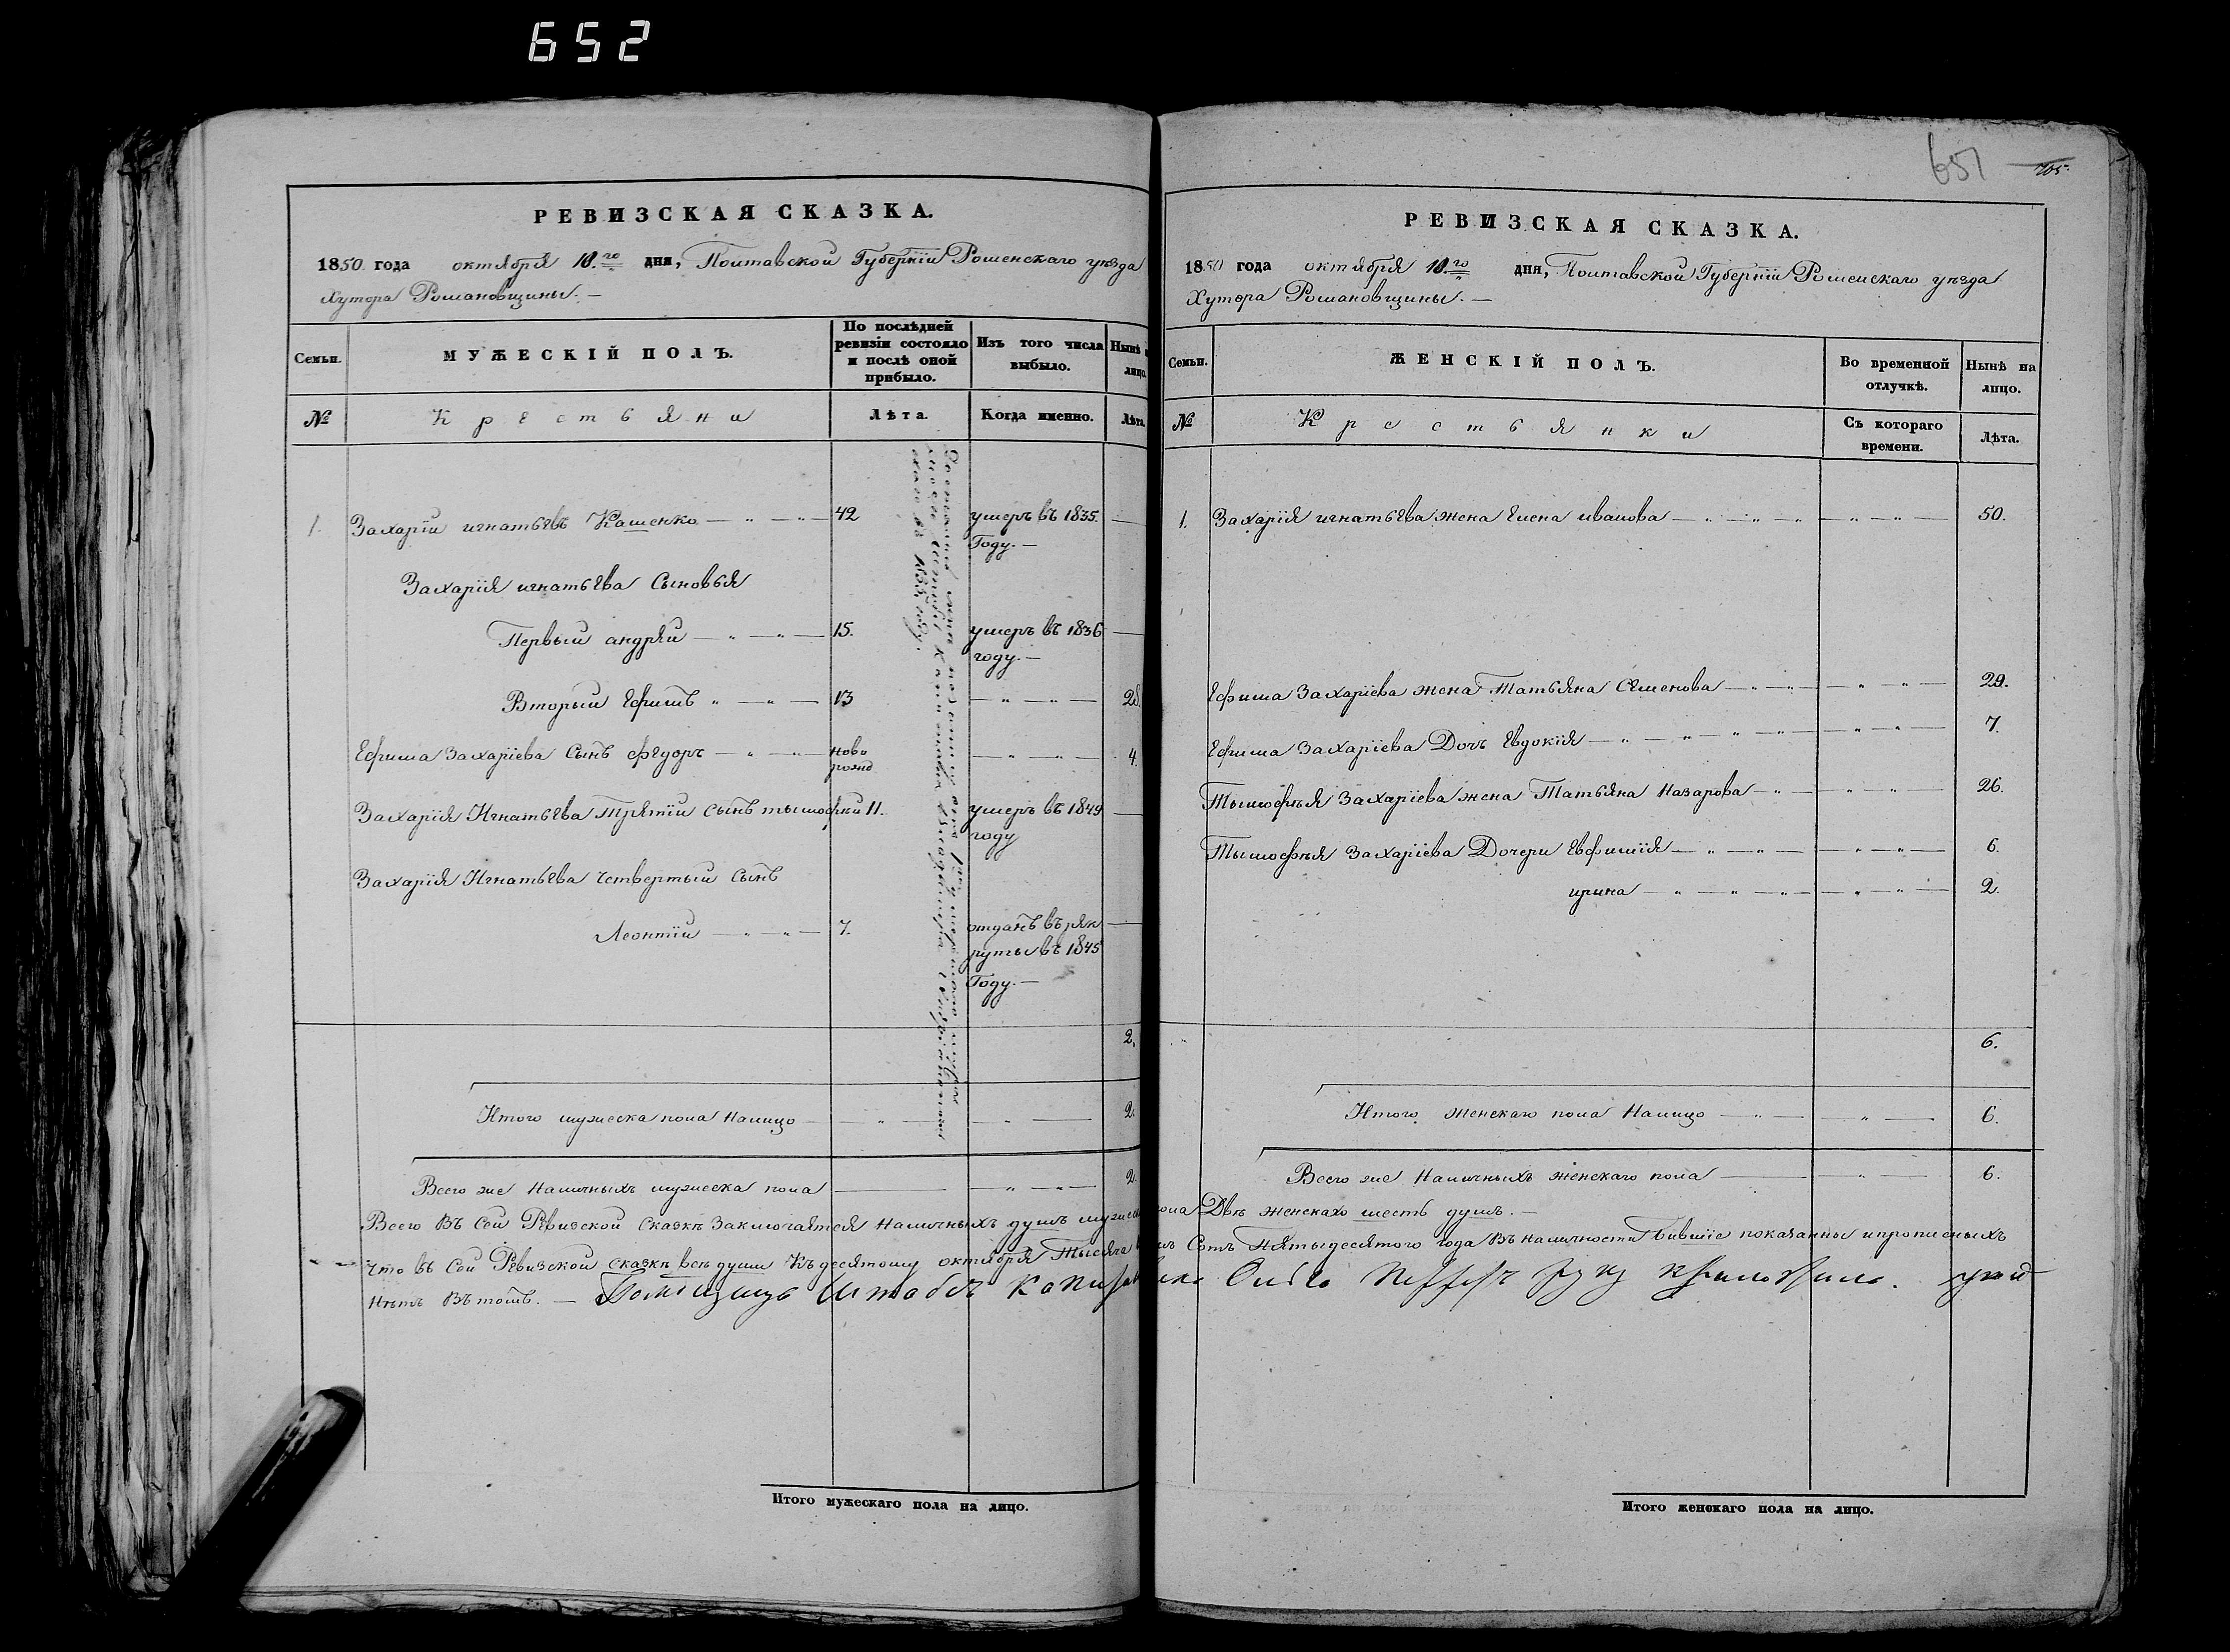 652
РЕВИЗСКАЯ СКАЗКА.
1850 года октября 10.го дня, Полтавской Губерніи Роменскаго уѣзда
Хутора Романовщины. —
Семьи.
МУЖЕСКІЙ ПОЛЪ.
По послѣдней
ревизіи состояло
и послѣ оной
прибыло.
Изъ того числа
выбыло.
Нынѣ
лицо.
№
Крестьяни
Лѣта.
Когда именно.
Лѣта.
1. Захарій игнатьевъ Кашенко — " — " — 42 умеръ въ 1835. —
Году. —
Захарія игнатьева Сыновья
Первый андрей — " — " — 15. умеръ въ 1836 —
году. —
Вторый Ефимъ " — " — 13 — " — " — 28.
Ефима Захаріева Сынъ федоръ — " — " — ново
рожд — " — " — 4.
Захарія Игнатьева Третій сынъ тымофей 11. умеръ въ 1849 —
году
Захарія Игнатьева Четвертый Сынъ
Леонтій — " — " — 7. отданъ въ рек —
руты въ 1845
Году. —
2.
Итого мужеска пола Налицо — " — " — 2.
Всего же Наличныхъ мужеска пола — " — " — 2.
651
705.
РЕВИЗСКАЯ СКАЗКА.
1850 года октября 10.го дня, Полтавской Губерніи Роменскаго уѣзда
Хутора Романовщины. —
Семьи.
ЖЕНСКІЙ ПОЛЪ.
Во временной
отлучкѣ.
Нынѣ на
лицо.
№
Крестьянки
Съ котораго
времени.
Лѣта.
1. Захарія игнатьева жена Елена иванова — " — " — " — " — " — 50.
Ефима Захаріева жена Татьяна Семенова — " — " — " — " — 29.
Ефима Захаріева Дочь Евдокія — " — " — " — " — " — 7
Тымофея Захаріева жена Татьяна Назарова — " — " — " — 26.
Тымофея Захаріева Дочери Евфимія — " — " — " — " — 6.
ирина — " — " — " — " — " — 2.
6.
Итого Женскаго пола Налицо — " — " — 6.
Всего же Наличныхъ женскаго пола — " — 6.
Всего Въ Сей Ревизской Сказкѣ Заключается Наличныхъ душъ мужеска пола Двѣ женскаго шесть душъ. —
Что въ Сей Ревизской сказкѣ всѣ души Къ десятому октября Тысяча Сотъ Пятьдесятого года Въ Наличности бывшіе показаны и прописныхъ
Нѣтъ Въ томъ. —
Итого мужескаго пола на лицо.
Итого женскаго пола на лицо.